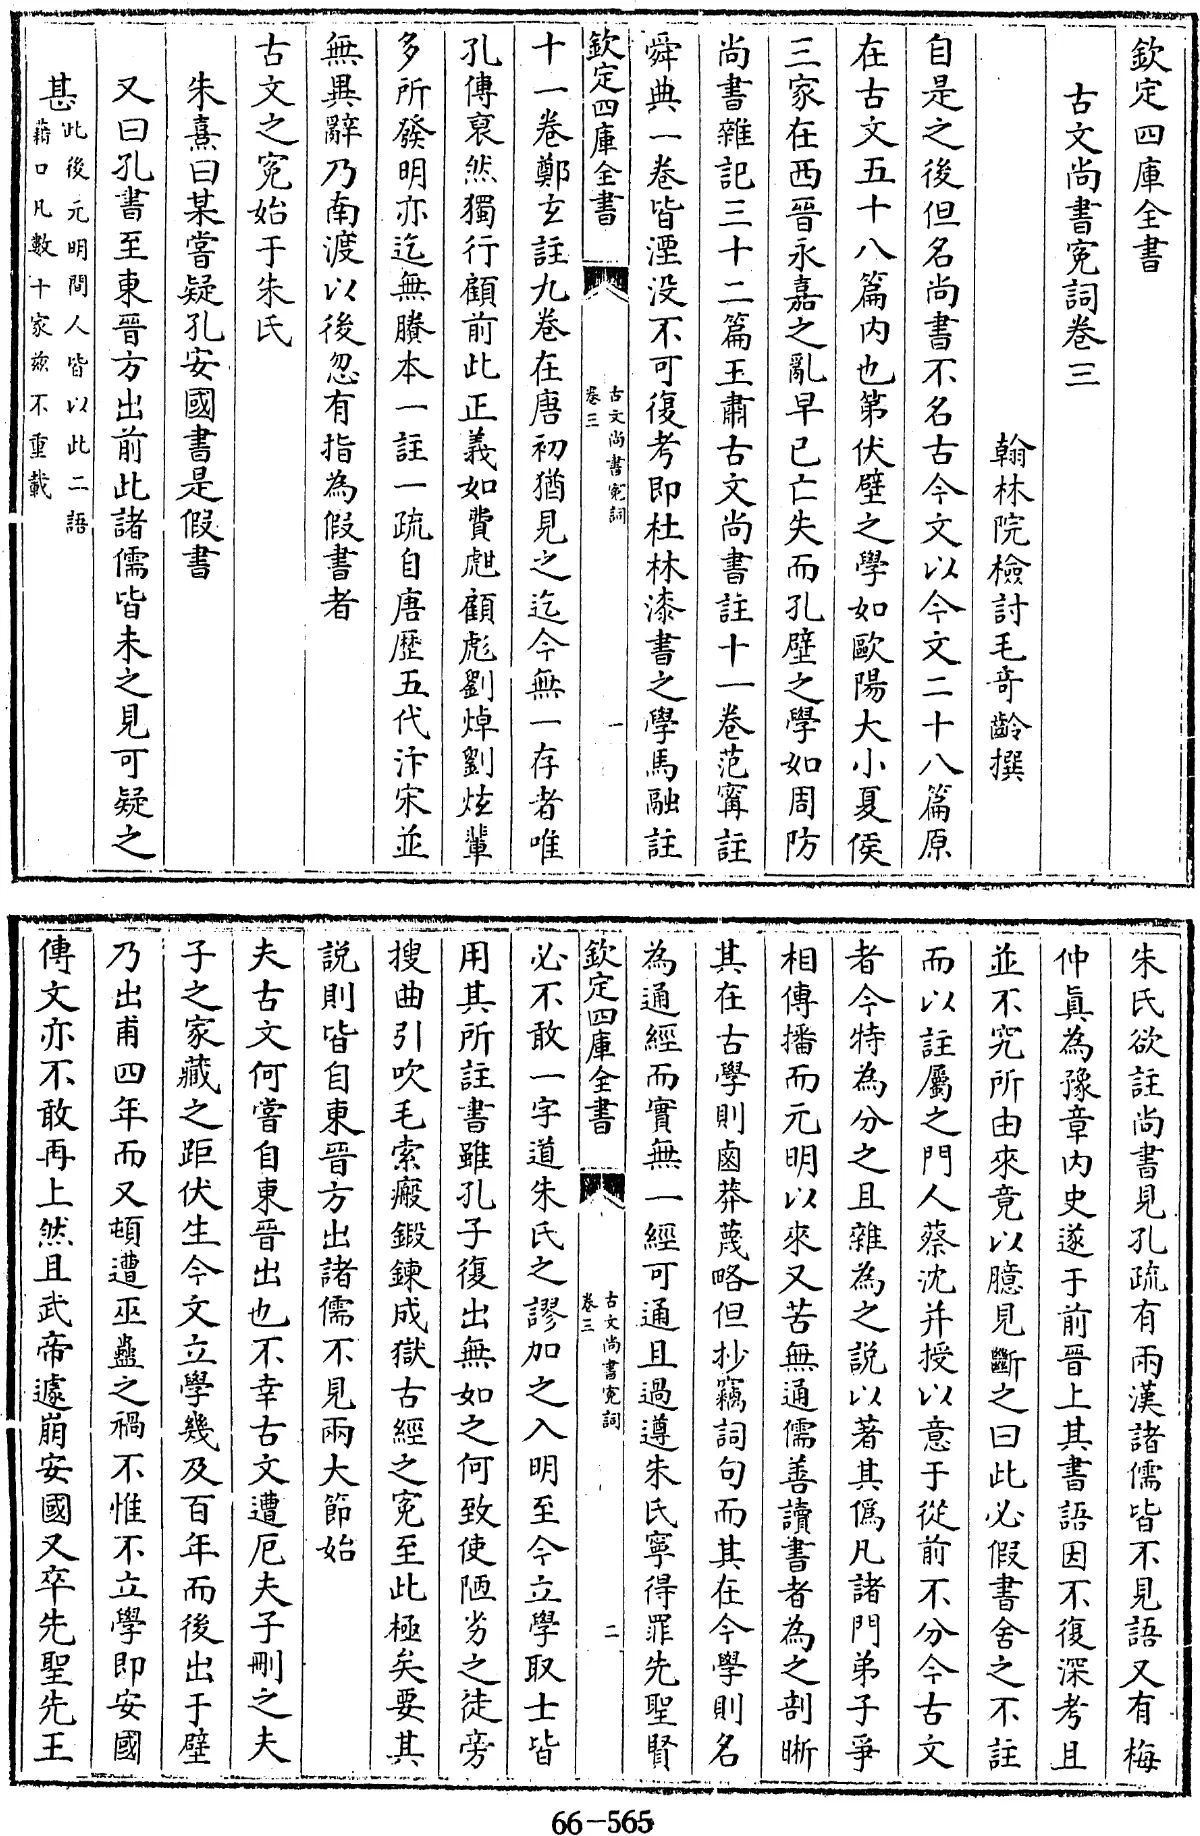 欽定四庫全書
古文尚書寃詞卷三
翰林院檢討毛奇齡撰
自是之後但名尚書不名古今文以今文二十八篇原
在古文五十八篇内也第伏壁之學如歐陽大小夏侯
三家在西晉永嘉之亂早已亡失而孔壁之學如周防
尚書雜記三十二篇王肅古文尚書註十一卷范甯註
舜典一卷皆湮没不可復考即杜林漆書之學馬融註
欽定四庫全書
古文尚書寃詞
卷三
一
十一卷鄭玄註九卷在唐初猶見之迄今無一存者唯
孔傳裒然獨行顧前此正義如費甝顧彪劉焯劉炫輩
多所發明亦迄無賸本一註一疏自唐歷五代汴宋並
無異辭乃南渡以後忽有指為假書者
古文之寃始于朱氏
朱熹曰某嘗疑孔安國書是假書
又曰孔書至東晉方出前此諸儒皆未之見可疑之
甚
此後元明間人皆以此二語
藉口凡數十家玆不重載
朱氏欲註尚書見孔疏有兩漢諸儒皆不見語又有梅
仲眞為豫章内史遂于前晉上其書語因不復深考且
並不究所由來竟以臆見斷之曰此必假書舍之不註
而以註屬之門人蔡沈并授以意于從前不分今古文
者今特為分之且雜為之説以著其僞凡諸門弟子爭
相傳播而元明以來又苦無通儒善讀書者為之剖晰
其在古學則鹵莽蔑略但抄竊詞句而其在今學則名
為通經而實無一經可通且過遵朱氏寧得罪先聖賢
欽定四庫全書
古文尚書寃詞
卷三
二
必不敢一字道朱氏之謬加之入明至今立學取士皆
用其所註書雖孔子復出無如之何致使陋劣之徒旁
搜曲引吹毛索瘢鍛鍊成獄古經之寃至此極矣要其
説則皆自東晉方出諸儒不見兩大節始
夫古文何嘗自東晉出也不幸古文遭厄夫子刪之夫
子之家藏之距伏生今文立學幾及百年而後出于壁
乃出甫四年而又頓遭巫蠱之禍不惟不立學即安國
傳文亦不敢再上然且武帝遽崩安國又卒先聖先王
66-565